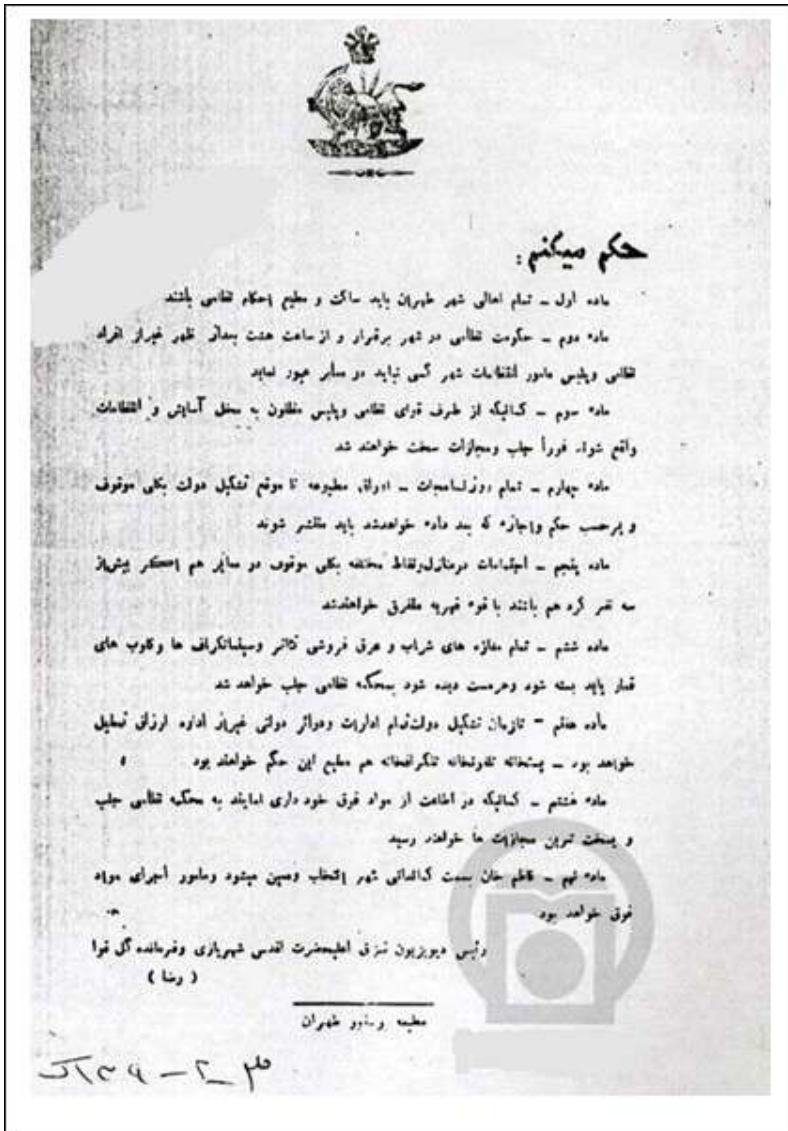 حکم میکنم :
ماده اول – تمام اهالی شهر طهران باید ساکت و مطیع احکام نظامی باشند
ماده دوم – حکومت نظامی در شهر برقرار و از ساعت هشت بعداز ظهر غیراز افراد
نظامی وپلیس مامور انتظامات شهر کسی نباید در معابر عبور نماید
ماده سوم – کسانیکه از طرف قوای نظامی وپلیس مظنون به مخل آسایش و انتظامات
واقع شوند فوراً جلب ومجازات سخت خواهند شد
ماده چهارم – تمام روزنامجات – اوراق مطبوعه تا موقع تشکیل دولت بکلی موقوف
و برحسب حکم واجازه که بعد داده خواهدشد باید منتشر شوند
ماده پنجم – اجتماعات درمنازل ونقاط مختلفه بکلی موقوف در معابر هم اگر بیش از
سه نفر گرد هم باشند با قوه قهریه متفرق خواهندشد
ماده ششم – تمام مغازه های شراب و عرق فروشی تئاتر وسینماتگراف ها وکلوب های
قمار باید بسته شود وهرمست دیده شود بمحکمه نظامی جلب خواهد شد
ماده هفتم – تازمان تشکیل دولت تمام ادارات ودوائر دولتی غیراز اداره ارزاق تعطیل
خواهد بود – پستخانه تلفونخانه تلگرافخانه هم مطیع این حکم خواهند بود
ماده هشتم – کسانیکه در اطاعت از مواد فوق خود داری نمایند به محکمه نظامی جلب
و بسخت ترین مجازات ها خواهند رسید
ماده نهم – کاظم خان بسمت کماندانی شهر انتخاب ومعین میشود ومامور اجرای مواد
فوق خواهد بود
رئیس دیویزیون قزاق اعلیحضرت اقدس شهریاری وفرمانده کل قوا
( رضا )
مطبعه طهران